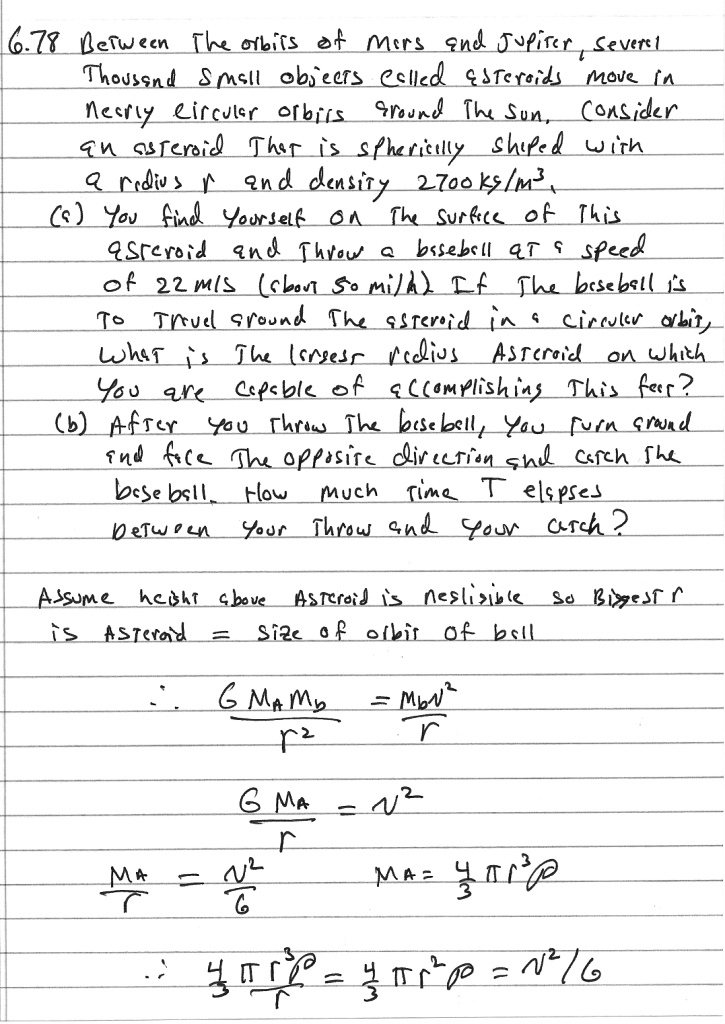 6.78 Between The orbits of Mars and Jupiter, several
Thousand small objects called asteroids move in
nearly circular orbits around The Sun. Consider
an asteroid That is spherically shaped with
a radius r and density 2700 kg/m³.
(a) You find yourself on The surface of This
asteroid and Throw a baseball at a speed
of 22 m/s (about 50 mi/h) If The baseball is
To Travel around The asteroid in a circular orbit,
what is The largest radius Asteroid on which
You are capable of accomplishing This feat?
(b) After you Throw The baseball, you Turn around
and face The opposite direction and catch The
baseball. How much Time T elapses
between your Throw and your catch?
Assume height above Asteroid is negligible so Biggest r
is Asteroid = size of orbit of ball
∴ G M_A M_b / r² = M_b v² / r
G M_A / r = v²
M_A / r = v² / G    M_A = 4/3 π r³ ρ
∴ 4/3 π r³ ρ / r = 4/3 π r² ρ = v²/G